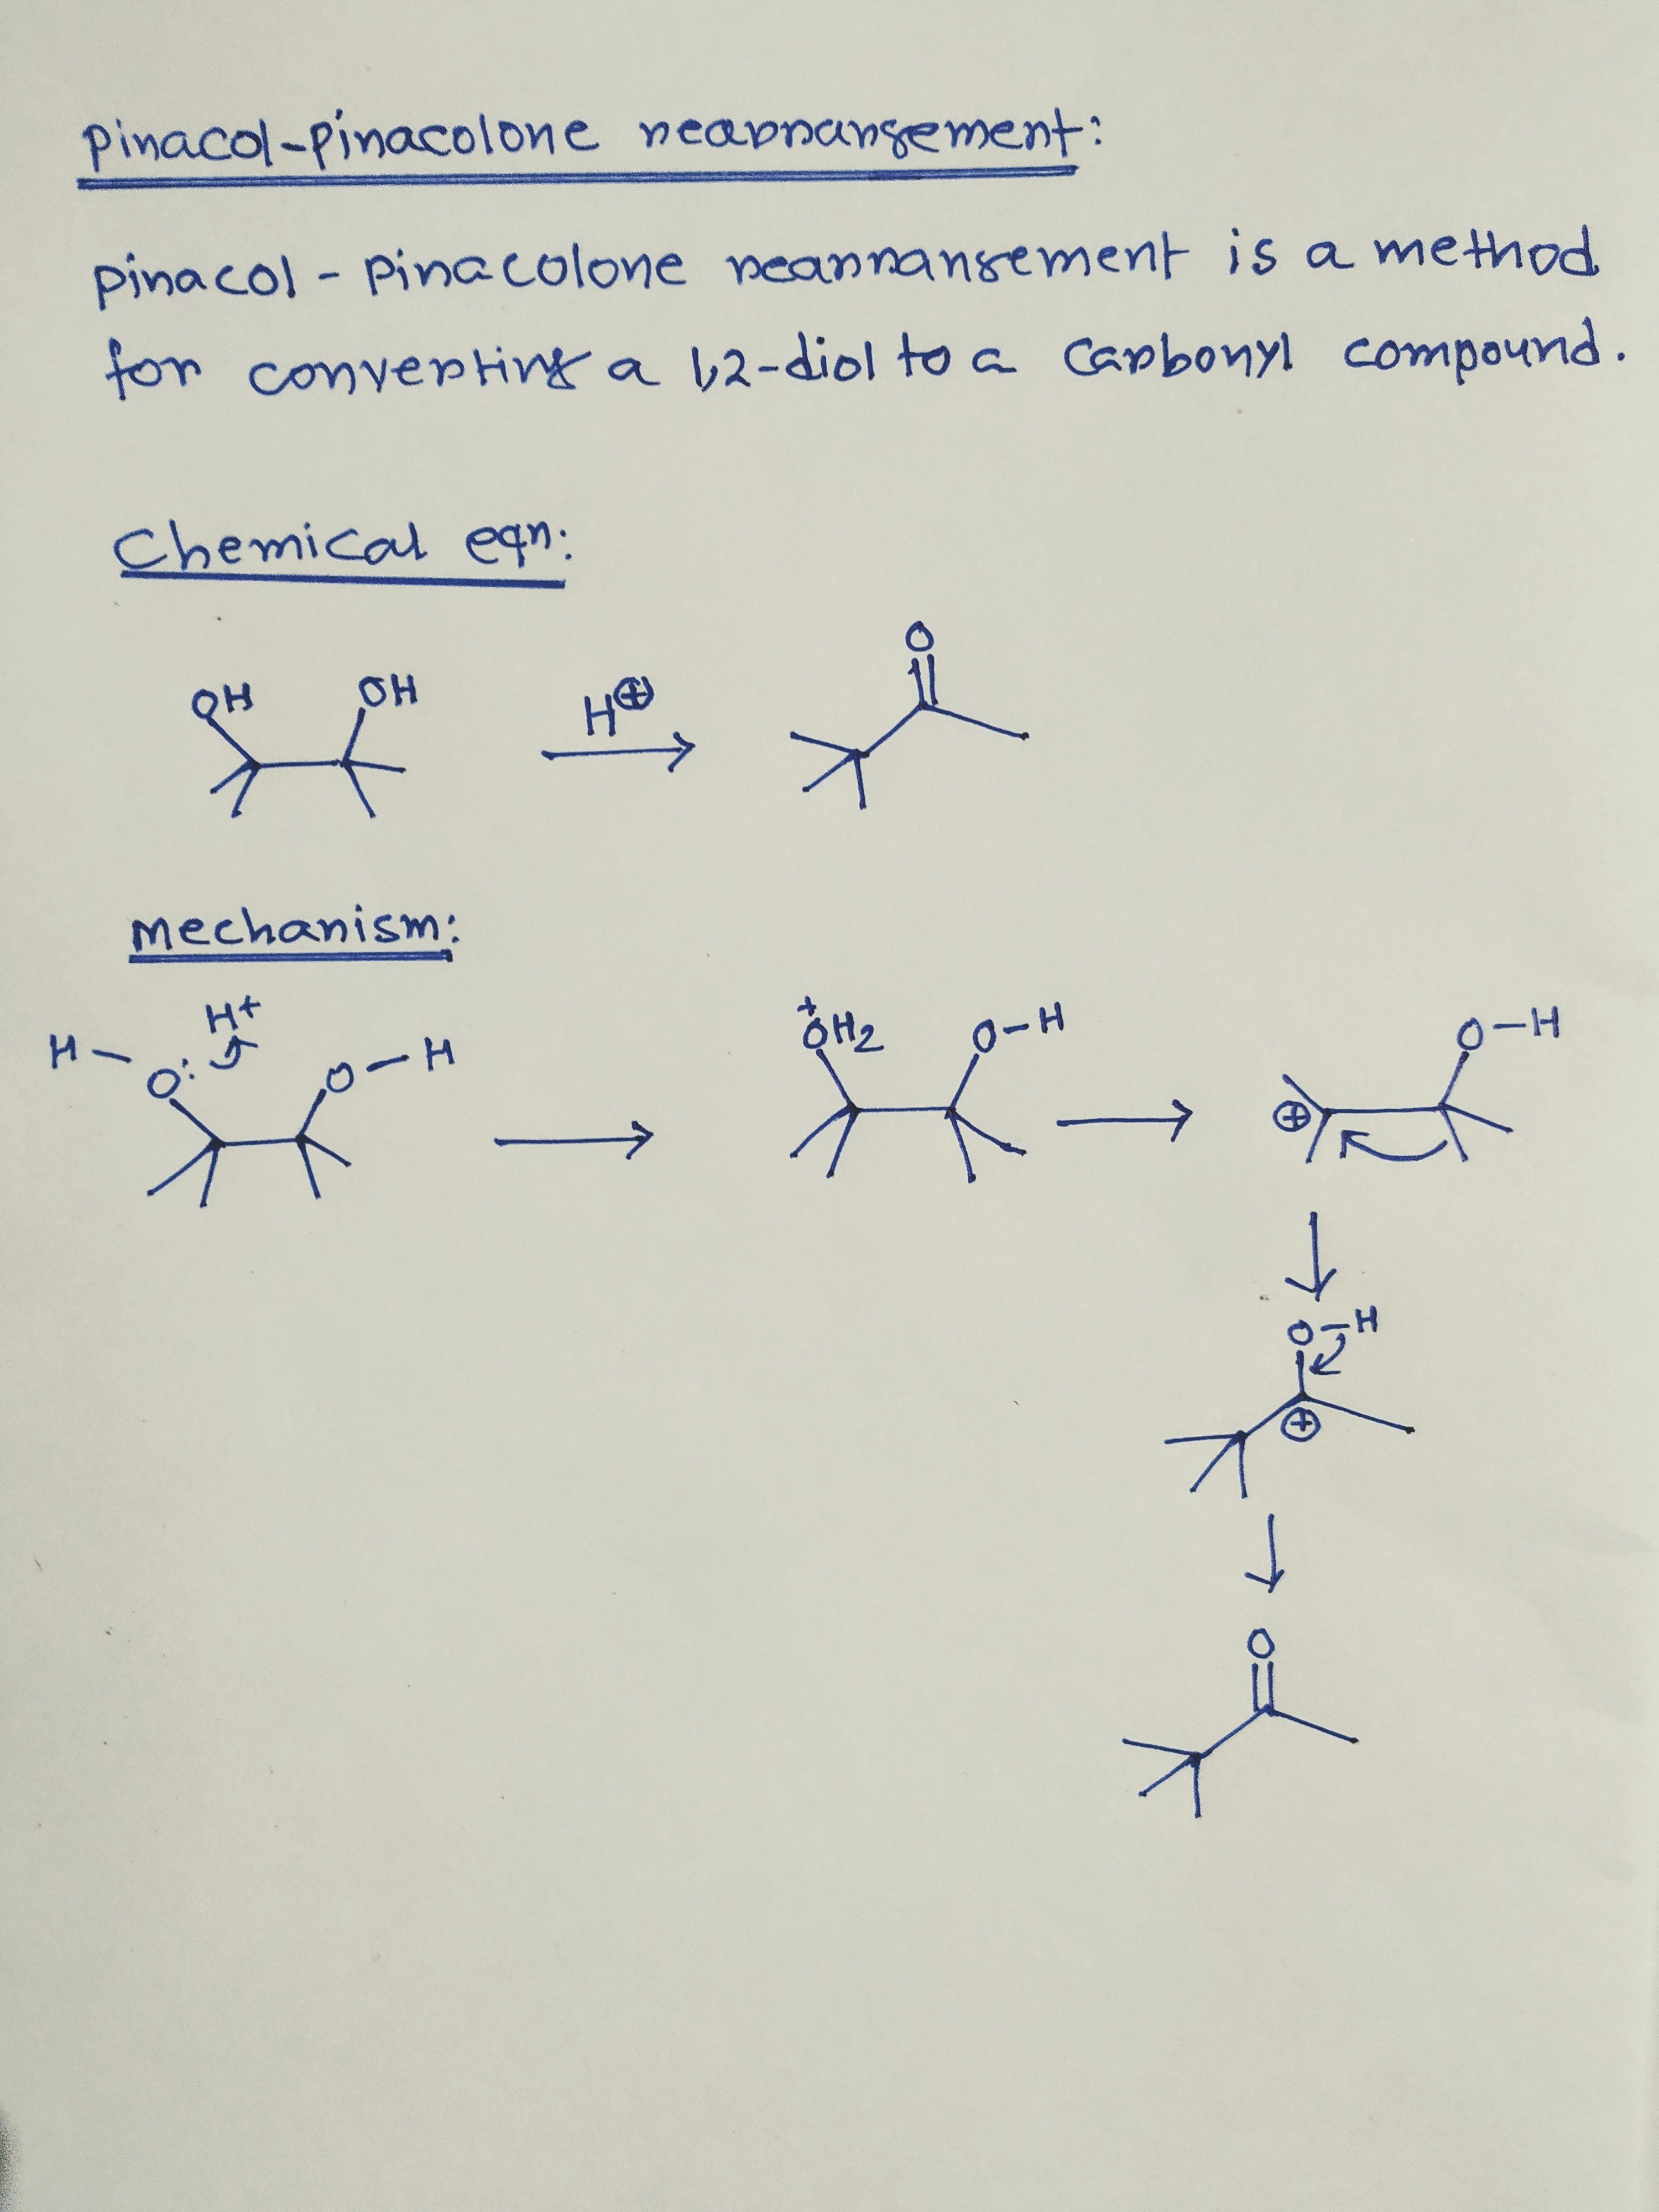 Pinacol-Pinacolone rearrangement:
Pinacol - Pinacolone rearrangement is a method
for converting a 1,2-diol to a carbonyl compound.
Chemical eqn:
OH OH H⊕ O
mechanism:
H-O: H+ O-H
+OH2 O-H
⊕ O-H
O-H
⊕
O